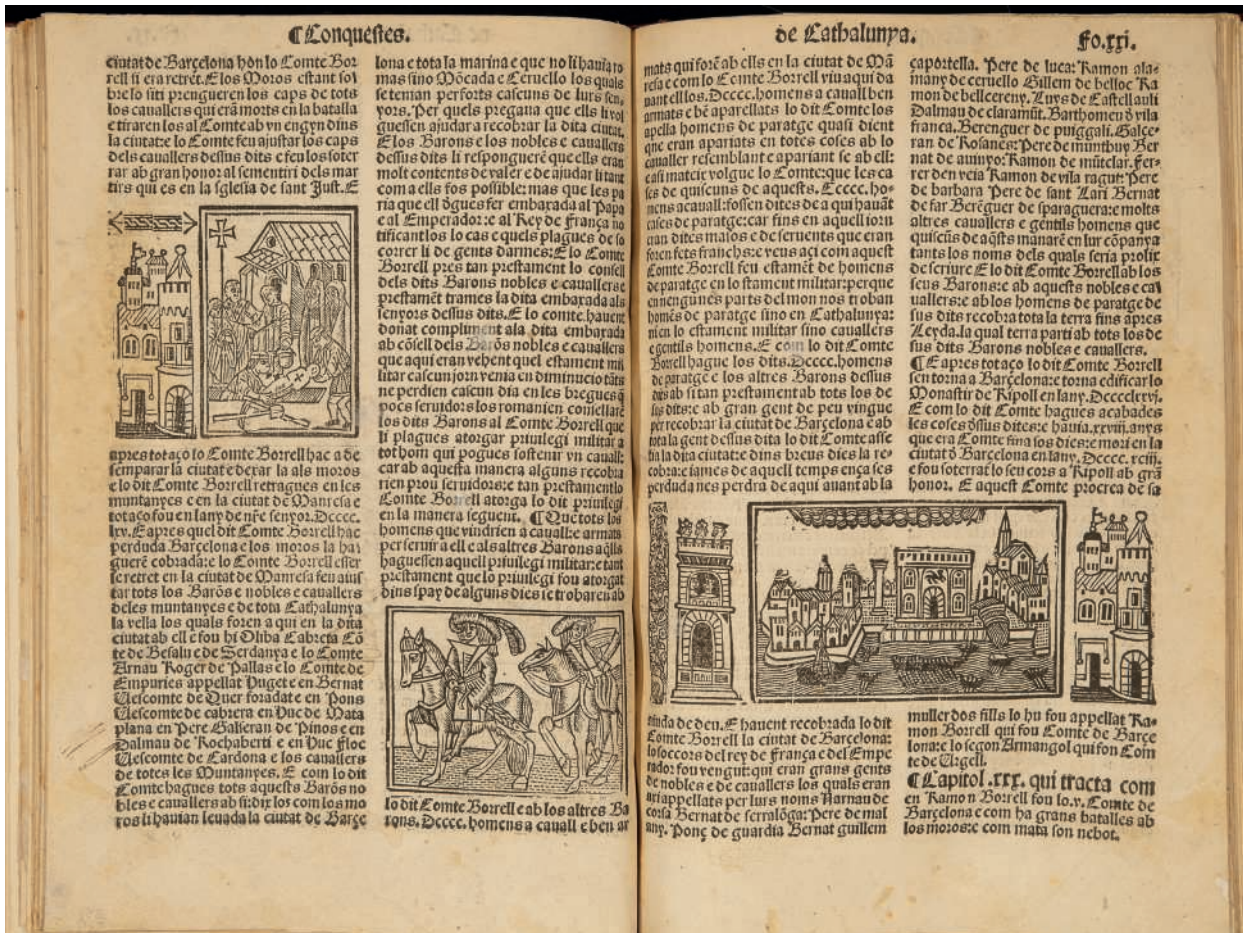 ¶Conquestes.
ciutat de Barçelona hõn lo Comte Bor
rell si era retret. E los Moros estant so
bre lo siti prengueren los caps de tots
los cauallers qui erã morts en la batalla
e tiraren los al Comte ab vn engyn dins
la ciutat: e lo Comte feu ajustar los caps
dels cauallers dessus dits e feu los soter
rar ab gran honor al sementiri dels mar
tirs qui es en la sglesia de sant Just. E
apres tot aço lo Comte Borrell hac a de
semparar la ciutat e dexar la als moros
e lo dit Comte Borrell retragues en les
muntanyes e en la ciutat de Manresa e
tot aço fou en lany de nře senyor. Dcccc.
lxv. E apres quel dit Comte Borrell hac
perduda Barçelona e los moros la ha
guerẽ cobrada: e lo Comte Borrell esser
se retret en la ciutat de Manresa feu aius
tar tots los Barõs e nobles e cauallers
deles muntanyes e de tota Cathalunya
la vella los quals foren a qui en la dita
ciutat ab ell e fou hi Oliba Cabreta Cõ
te de Besalu e de Serdanya e lo Comte
Arnau Roger de Pallas e lo Comte de
Empuries appellat Huget e en Bernat
Uescomte de Quer foradat e en Pons
Uescomte de cabrera en Huc de Mata
plana en Pere Galseran de Pinos e en
Dalmau de Rochaberti e en Huc floc
Uescomte de Cardona e los cauallers
de totes les Muntanyes. E com lo dit
Comte hagues tots aquests Barõs no
bles e cauallers ab si: dix los com los mo
ros li hauian leuada la ciutat de Barçe
lona e tota la marina e que no li hauia ro
mas sino Mõcada e Ceruello los quals
se tenian per forts cascuns de lurs sen
yors. Per quels pregaua que ells li vol
guessen ajudar a recobrar la dita ciutat.
E los Barons e los nobles e cauallers
dessus dits li responguerẽ que ells eran
molt contents de valer e de ajudar li tant
com a ells fos possible: mas que les pa
ria que ell õgues fer embaxada al Papa
e al Emperador: e al Rey de França no
tificant los lo cas e quels plagues de so
correr li de gents darmes: E lo Comte
Borrell pres tan prestament lo consell
dels dits Barons nobles e cauallers e
prestamẽt trames la dita embaxada als
senyors dessus dits. E lo comte. hauent
donat compliment ala dita embaxada
ab cõsell dels Barõs nobles e cauallers
que aqui eran vehent quel estament mi
litar cascun jorn venia en diminucio tãts
ne perdien cascun dia en les bregues q̃
pocs seruidors los romanien consellarẽ
los dits Barons al Comte Borrell que
li plagues atorgar priuilegi militar a
tot hom qui pogues sostenir vn cauall:
car ab aquesta manera alguns recobra
rien prou seruidors: e tan prestament lo
Comte Borrell atorga lo dit priuilegi
en la manera seguent. ¶Que tots los
homens que vindrien a cauall: e armats
per seruir a ell e als altres Barons aq̃lls
haguessen aquell priuilegi militar: e tant
prestament que lo priuilegi fou atorgat
dins spay de alguns dies se trobaren ab
lo dit Comte Borrell e ab los altres Ba
rons. Dcccc. homens a cauall e ben ar
de Cathalunya.
Fo.xxi.
mats qui forẽ ab ells en la ciutat de Mã
resa e com lo Comte Borrell viu aqui da
uant ell los. Dcccc. homens a cauall ben
armats e bẽ aparellats lo dit Comte los
apella homens de paratge quasi dient
que eran apariats en totes coses ab lo
caualler resemblant e apariant se ab ell:
e asi mateix volgue lo Comte: que les ca
ses de quiscuns de aquests. Ccccc. ho-
mens a cauall: fossen dites de a qui hauãt
cases de paratge: car fins en aquell iorn
eran dites masos e de seruents que eran
foren fets franchs: e veus açi com aquest
Comte Borrell feu estamẽt de homens
de paratge en lo stament militar: perque
en nengunes parts del mon nos troban
homẽs de paratge sino en Cathalunya:
ni en lo estament militar sino cauallers
e gentils homens. E com lo dit Comte
Borrell hague los dits. Dcccc. homens
de paratge e los altres Barons dessus
dits ab si tan prestament ab tots los de
sus dits: e ab gran gent de peu vingue
per recobrar la ciutat de Barcelona e ab
tota la gent dessus dita lo dit Comte asse
tia la dita ciutat: e dins breus dies la re-
cobra: e iames de aquell temps ença ses
perduda nes perdra de aqui auant ab la
aiuda de deu. E hauent recobrada lo dit
Comte Borrell la ciutat de Barçelona:
lo soccors del rey de França e del Empe
rador fou vengut: qui eran grans gents
de nobles e de cauallers los quals eran
axi appellats per lurs noms Harnau de
corsa Bernat de serralõga: Pere de mal
any. Ponç de guardia Bernat guillem
çaportella. Pere de luca: Ramon ala-
many de ceruello Gillem de belloc Ra
mon de bellcereny. Luys de Castellauli
Dalmau de claramũt. Barthomeu õ vila
franca. Berenguer de puiggali. Galçe-
ran de Rosanes: Pere de mũtbuy Ber
nat de auinyo: Ramon de mũtclar. fer-
rer den veia Ramon de vila ragut: Pere
de barbara Pere de sant Lari Bernat
de far Berẽguer de sparaguera: e molts
altres cauallers e gentils homens que
quiscũs de aq̃sts manarẽ en lur cõpanya
tants los noms dels quals seria prolix
de scriure E lo dit Comte Borrell ab los
seus Barons: e ab aquests nobles e ca
uallers: e ab los homens de paratge de
sus dits recobra tota la terra fins apres
Leyda. la qual terra parti ab tots los de
sus dits Barons nobles e cauallers.
¶E apres tot aço lo dit Comte Borrell
sen torna a Barçelona: e torna edificar lo
Monastir de Ripoll en lany. Dcccclxxvj.
E com lo dit Comte hagues acabades
les coses õssus dites: e hauia. xxviij. anys
que era Comte fina sos dies: e mori en la
ciutat õ Barcelona en lany. Dcccc. xciij.
e fou soterrat lo seu cors a Ripoll ab grã
honor. E aquest Comte procrea de sa
muller dos fills lo hu fou appellat Ra-
mon Borrell qui fou Comte de Barçe
lona: e lo segon Armangol qui fon Com
te de Urgell.
¶Capitol .xxx. qui tracta com
en Ramon Borrell fou lo. v. Comte de
Barçelona e com ha grans batalles ab
los moros: e com mata son nebot.